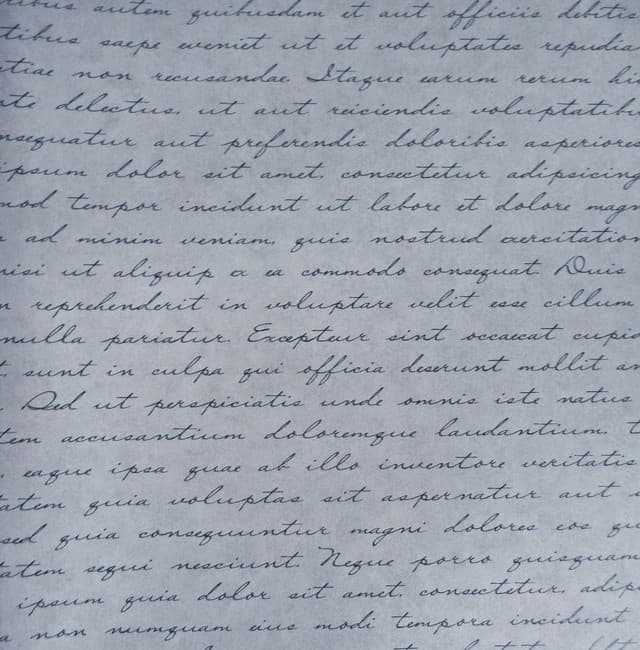 autem quibusdam et aut officiis debitis
tibus saepe eveniet ut et voluptates repudia
etiae non recusandae Itaque earum rerum hi
nte delectus, ut aut reiciendis voluptatibu
nsequatur aut preferendis doloribis asperiores
ipsum dolor sit amet, consectetur adipisicing
mod tempor incidunt ut labore et dolore magn
ad minim veniam, quis nostrud exercitation
nisi ut aliquip ex ea commodo consequat. Duis
n reprehenderit in voluptare velit esse cillum
nulla pariatur. Excepteur sint occaecat cupid
t, sunt in culpa qui officia deserunt mollit an
. Sed ut perspiciatis unde omnis iste natus
tem accusantium doloremque laudantium, t
, eaque ipsa quae ab illo inventore veritatis
tatem quia voluptas sit aspernatur aut
sed quia consequuntur magni dolores eos qu
tatem sequi nesciunt. Neque porro quisquam
ipsum quia dolor sit amet, consectetur, adipi
a non numquam eius modi tempora incidunt